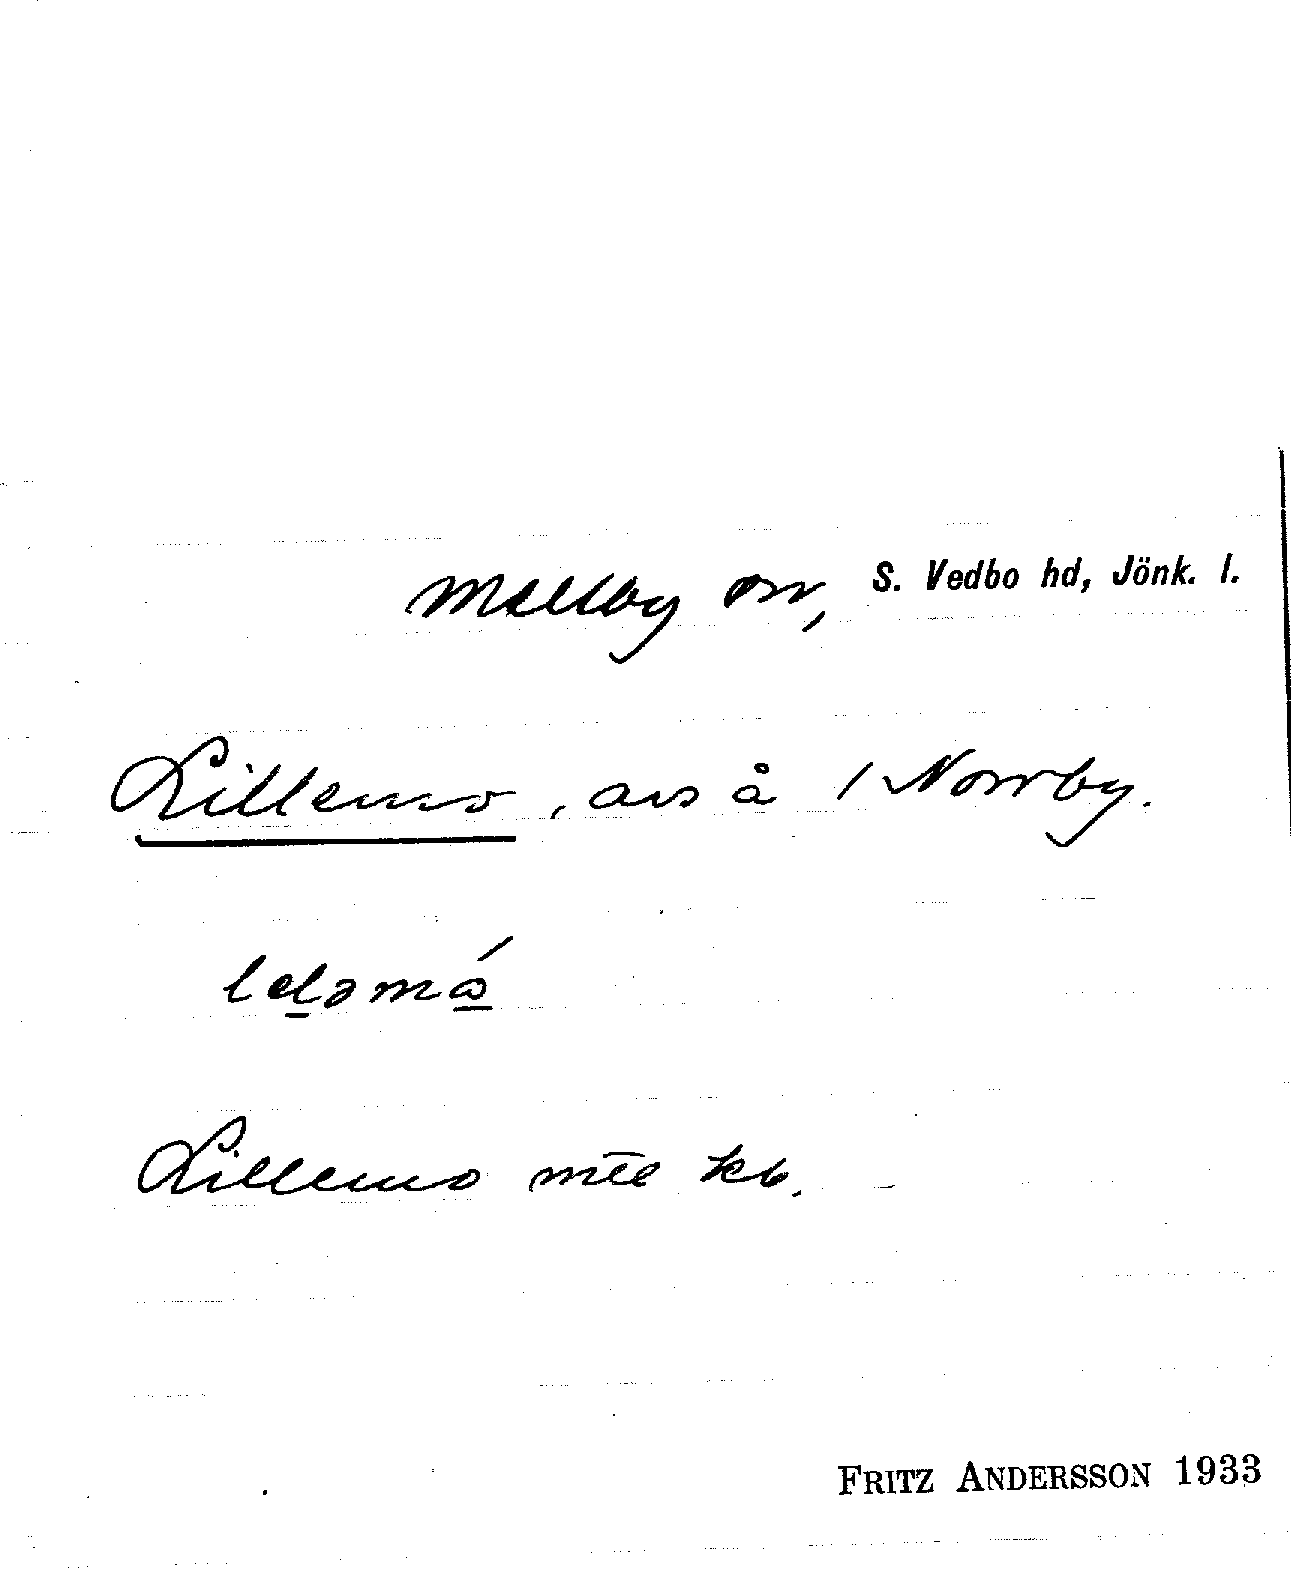 Mellby sn, S. Vedbo hd, Jönk. l.
Lillemo, avs å 1 Norrby.
Lillemo mtl kb.
FRITZ ANDERSSON 1933